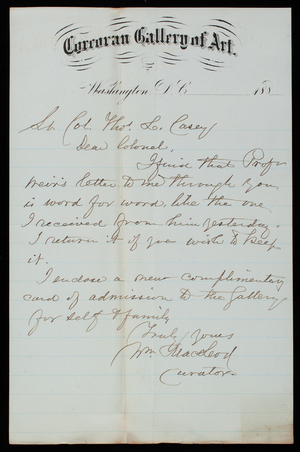 Corcoran Gallery of Art.
Washington D.C. 188
Lt. Col. Thos. L. Casey
Dear Colonel,
I find that Profr
Weir's letter to me through you,
is word for word, like the one
I received from him yesterday.
I return it if you wish to keep
it.
I enclose a new complimentary
card of admission to the Gallery
for self & family
Truly yours
Wm. MacLeod
Curator